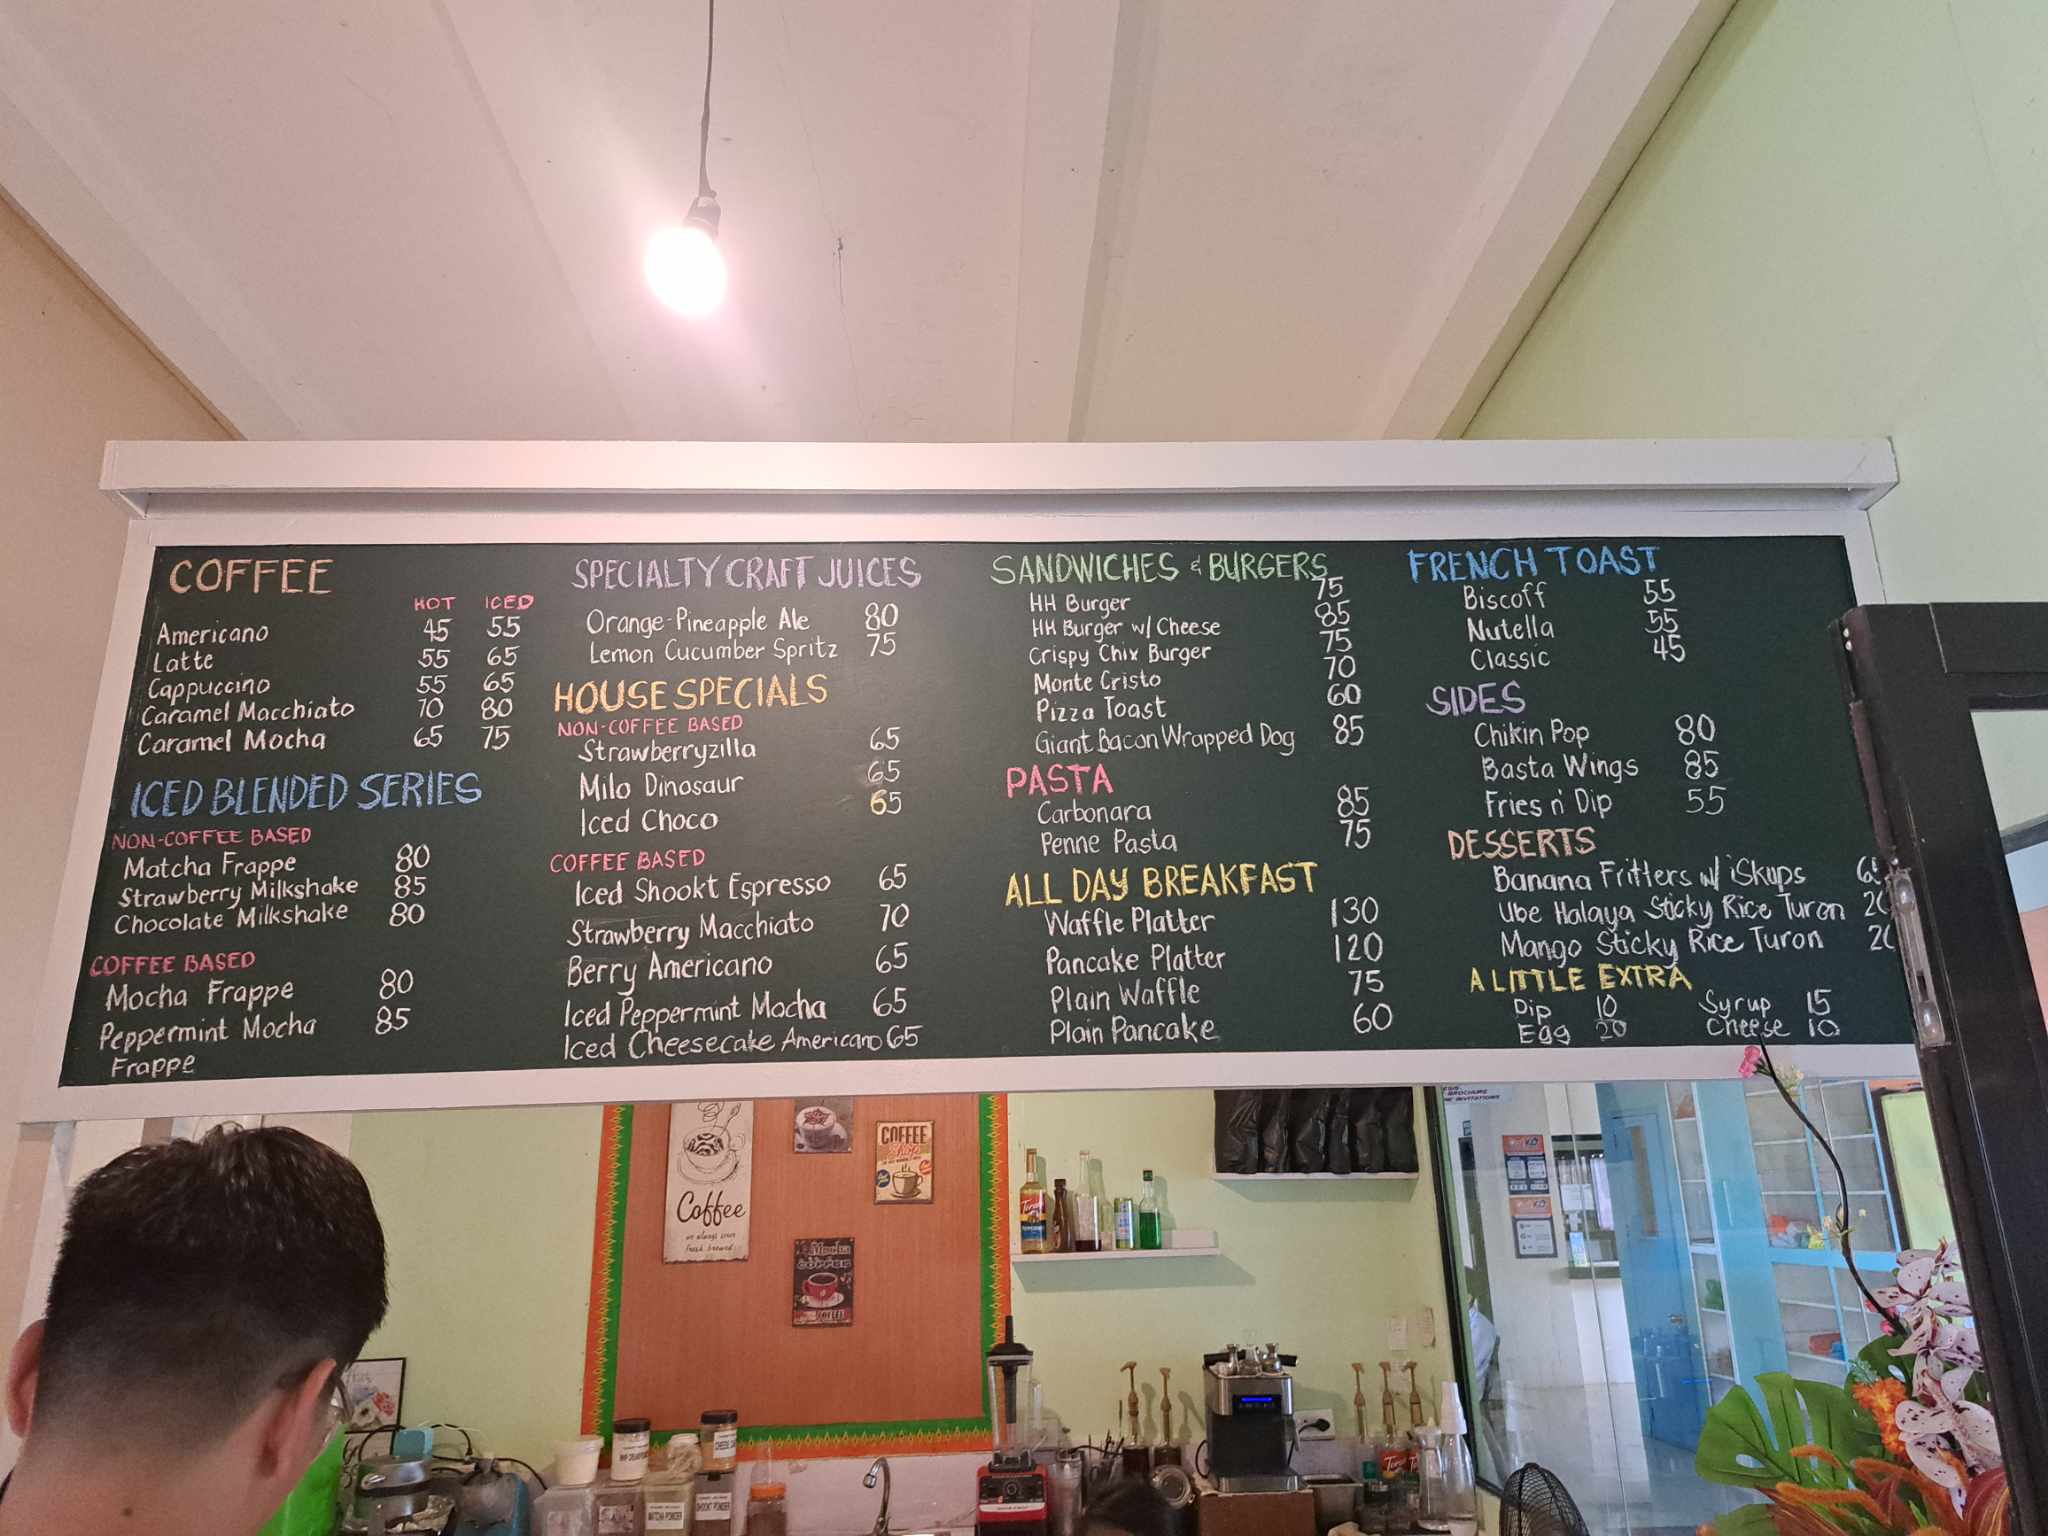 COFFEE
HOT ICED
Americano 45 55
Latte 55 65
Cappuccino 55 65
Caramel Macchiato 70 80
Caramel Mocha 65 75
ICED BLENDED SERIES
NON-COFFEE BASED
Matcha Frappe 80
Strawberry Milkshake 85
Chocolate Milkshake 80
COFFEE BASED
Mocha Frappe 80
Peppermint Mocha 85
Frappe
SPECIALTY CRAFT JUICES
Orange-Pineapple Ale 80
Lemon Cucumber Spritz 75
HOUSE SPECIALS
NON-COFFEE BASED
Strawberryzilla 65
Milo Dinosaur 65
Iced Choco 65
COFFEE BASED
Iced Shookt Espresso 65
Strawberry Macchiato 70
Berry Americano 65
Iced Peppermint Mocha 65
Iced Cheesecake Americano 65
SANDWICHES & BURGERS
HH Burger 75
HH Burger w/ Cheese 85
Crispy Chix Burger 75
Monte Cristo 70
Pizza Toast 60
Giant Bacon Wrapped Dog 85
PASTA
Carbonara 85
Penne Pasta 75
ALL DAY BREAKFAST
Waffle Platter 130
Pancake Platter 120
Plain Waffle 75
Plain Pancake 60
FRENCH TOAST
Biscoff 55
Nutella 55
Classic 45
SIDES
Chikin Pop 80
Basta Wings 85
Fries n' Dip 55
DESSERTS
Banana Fritters w/ iSkups
Ube Halaya Sticky Rice Turon
Mango Sticky Rice Turon
A LITTLE EXTRA
Dip 10 Syrup 15
Egg 20 Cheese 10
Coffee
we always serve
fresh brewed
COFFEE
Shop
Mocha
COFFEE
COFFEE
BROCHURE
INVITATIONS
Torani
MATCHA POWDER